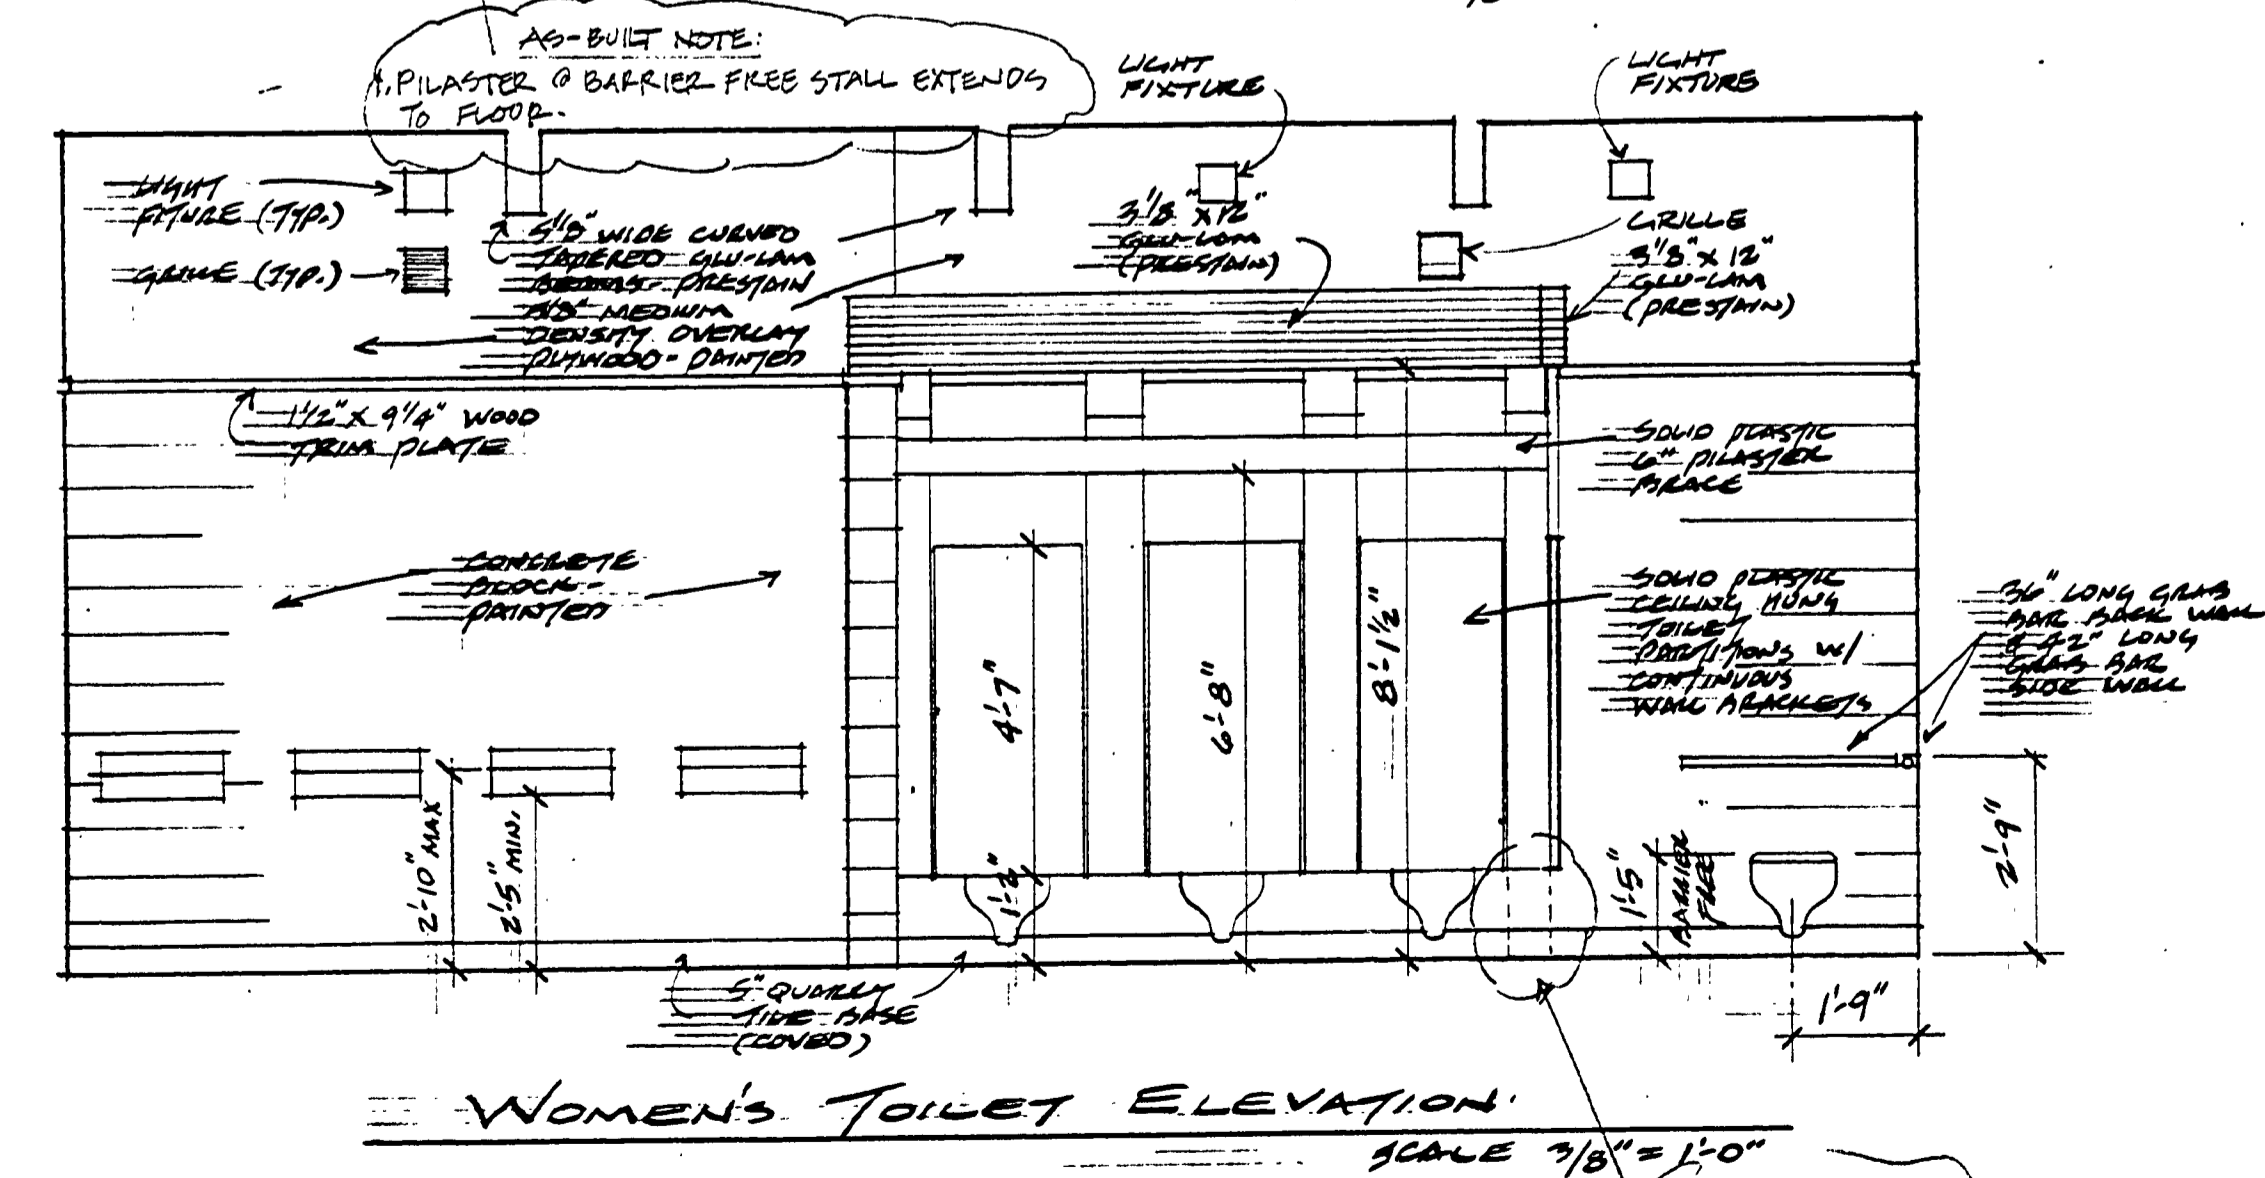 AS-BUILT NOTE:
1. PILASTER @ BARRIER FREE STALL EXTENDS
TO FLOOR.
LIGHT
FIXTURE
LIGHT
FIXTURE
LIGHT
FITURE (TYP.)
GRILLE (TYP.)
5 1/8" WIDE CURVED
TAPERED GLU-LAM
BEAMS - PRESTAIN
MEDIUM
DENSITY OVERLAY
PLYWOOD - PAINTED
3 1/8" X 12"
GLU-LAM
(PRESTAIN)
GRILLE
3 1/8" X 12"
GLU-LAM
(PRESTAIN)
1 1/2" X 9 1/4" WOOD
TRIM PLATE
SOLID PLASTIC
6" PILASTER
BRACE
CONCRETE
BLOCK -
PAINTED
SOLID PLASTIC
CEILING HUNG
TOILET
PARTITIONS W/
CONTINUOUS
WALL BRACKETS
36" LONG GRAB
BAR BACK WALL
& 42" LONG
GRAB BAR
SIDE WALL
4'-7"
6'-8"
8'-1 1/2"
1'-2"
2'-10" MAX
2'-5" MIN.
1'-5"
BARRIER
FREE
2'-9"
1'-9"
5" QUARRY
TILE BASE
(COVED)
WOMEN'S TOILET ELEVATION.
SCALE 3/8" = 1'-0"